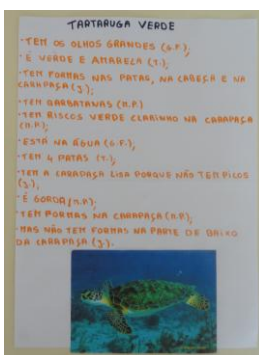 TARTARUGA VERDE
- TEM OS OLHOS GRANDES (G.F.);
- É VERDE E AMARELA (T.);
- TEM FORMAS NAS PATAS, NA CABEÇA E NA
CARAPAÇA (J.);
- TEM BARBATANAS (M.P.)
- TEM RISCOS VERDE CLARINHO NA CARAPAÇA
(M.P.);
- ESTÁ NA ÁGUA (G.F.);
- TEM 4 PATAS (T.);
- TEM A CARAPAÇA LISA PORQUE NÃO TEM PICOS
(J.);
- É GORDA (M.P.);
- TEM FORMAS NA CARAPAÇA (M.P.);
- MAS NÃO TEM FORMAS NA PARTE DE BAIXO
DA CARAPAÇA (J.).